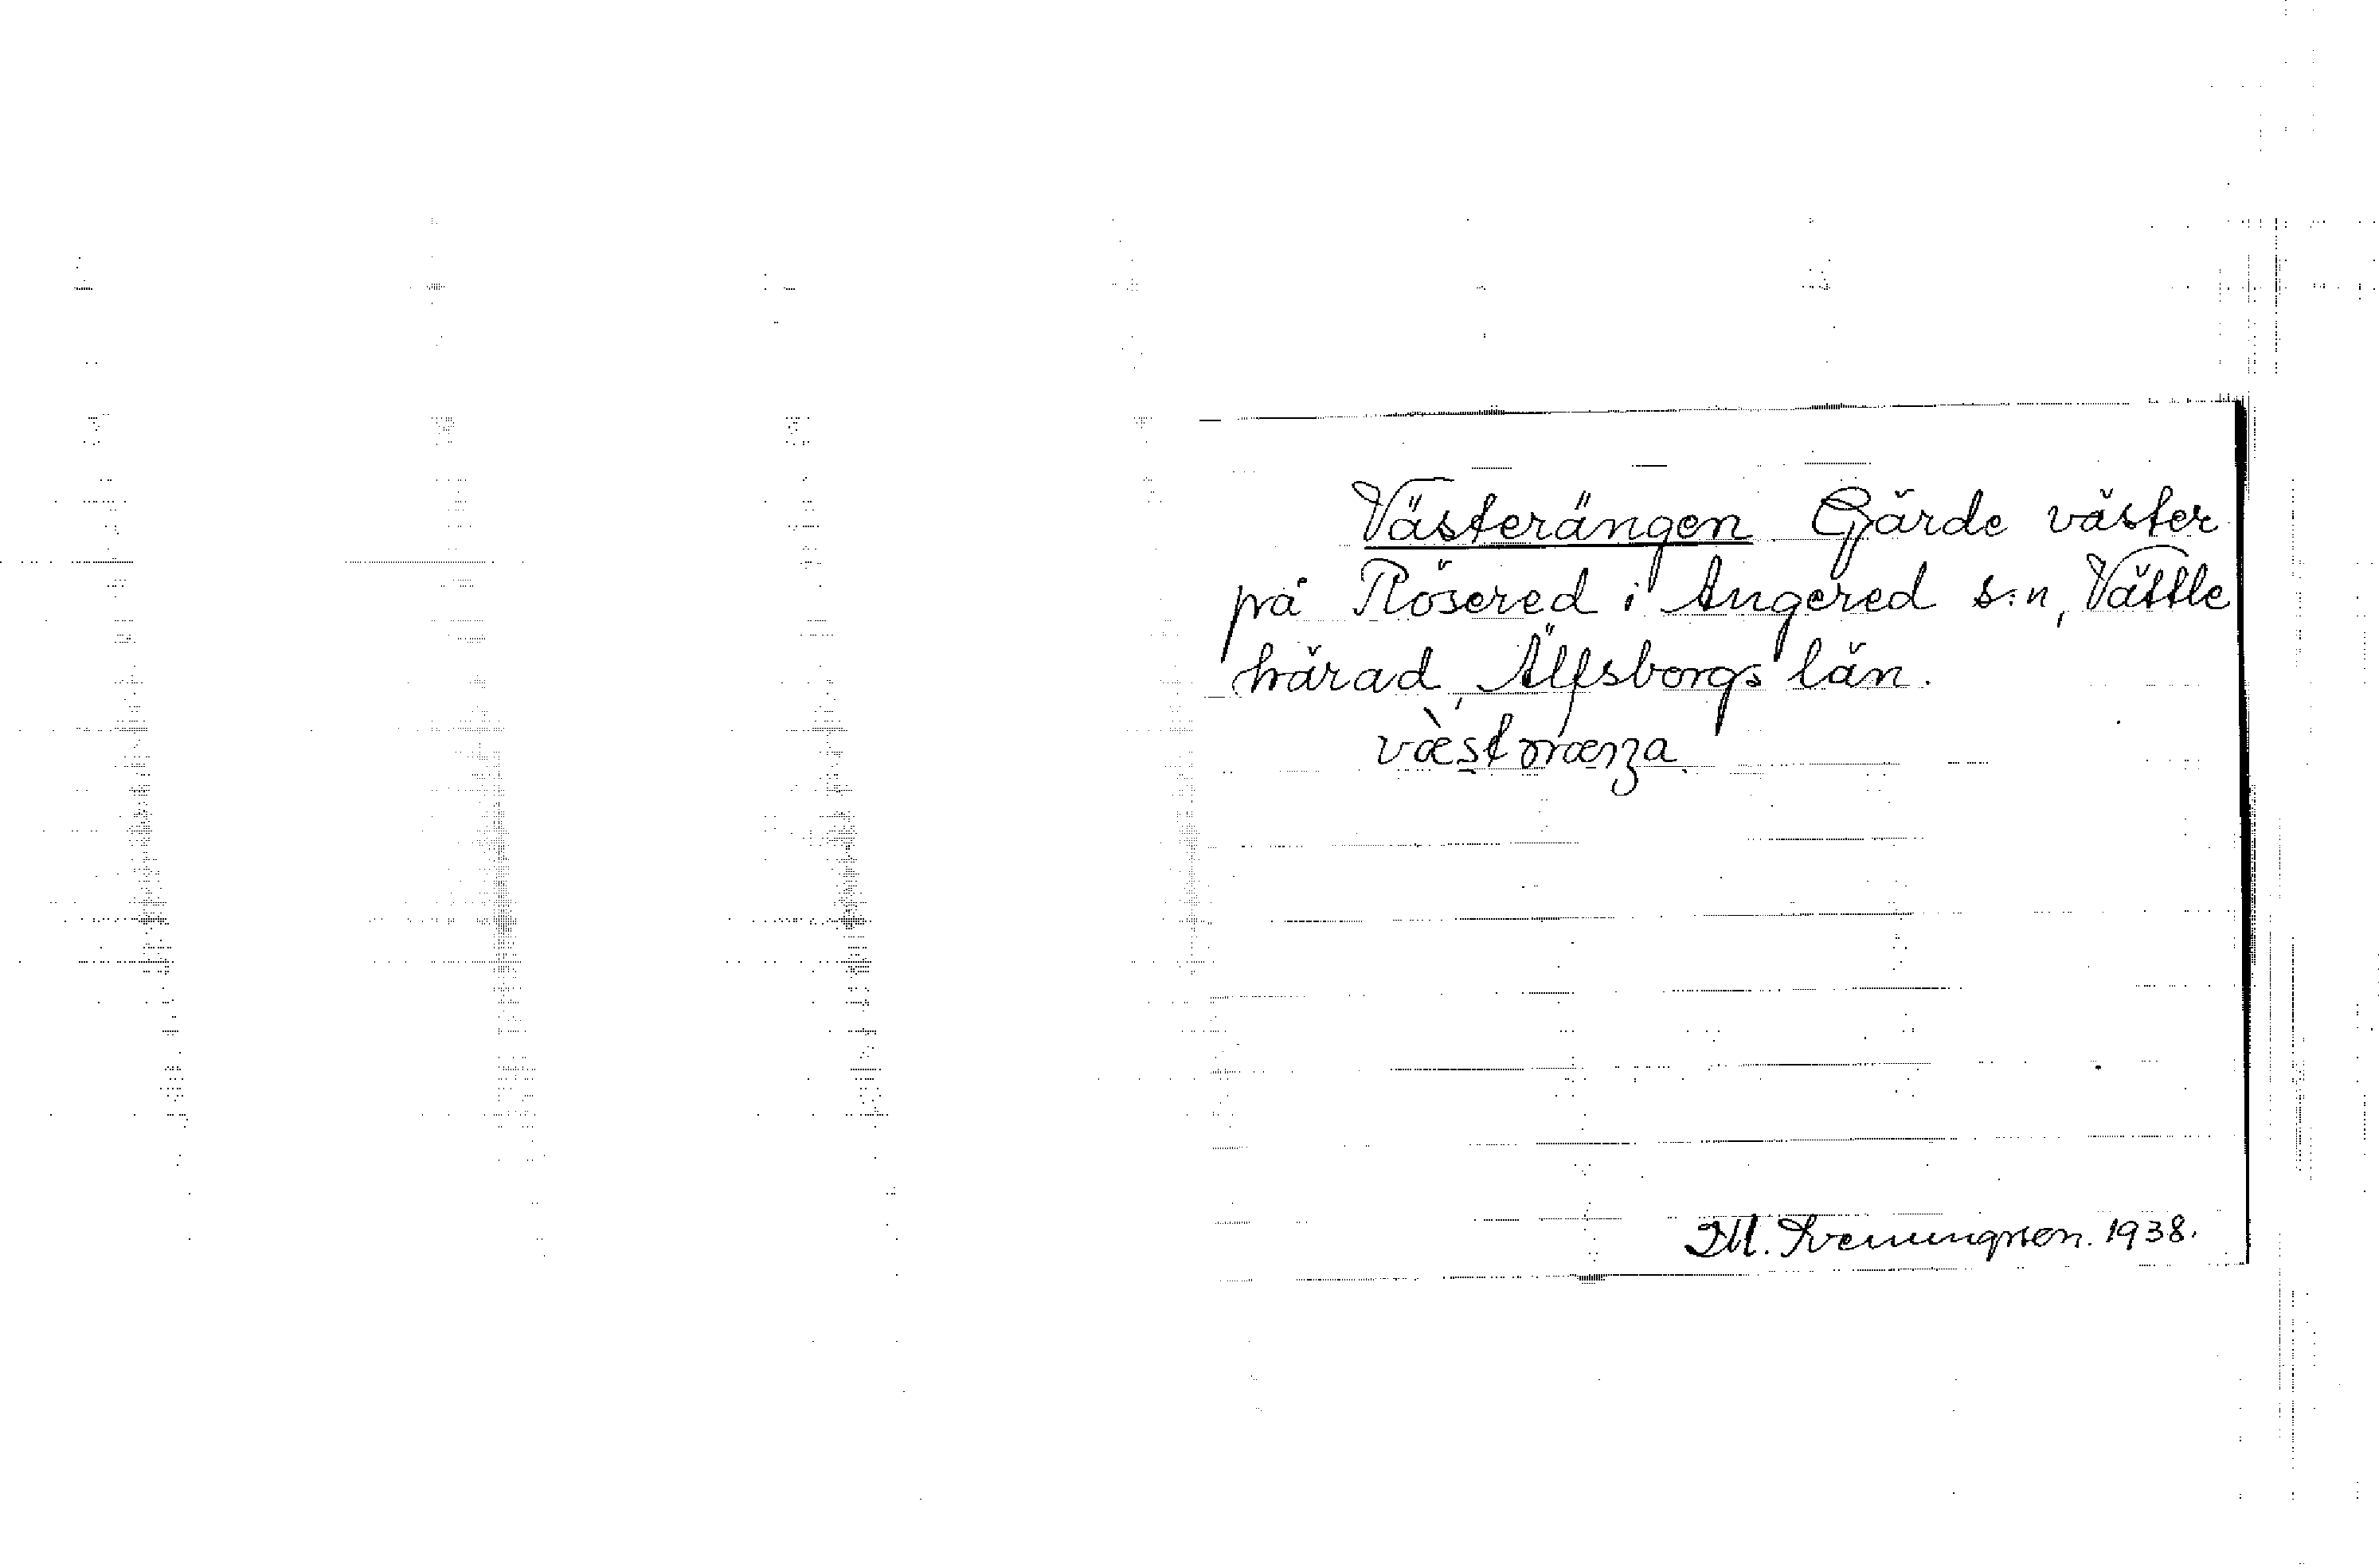 Västerängen Gärde väster
på Rösered i Angered s:n, Vättle
härad, Älfsborgs län.
væ̀stəræŋa
I M. Svenungsson. 1938.